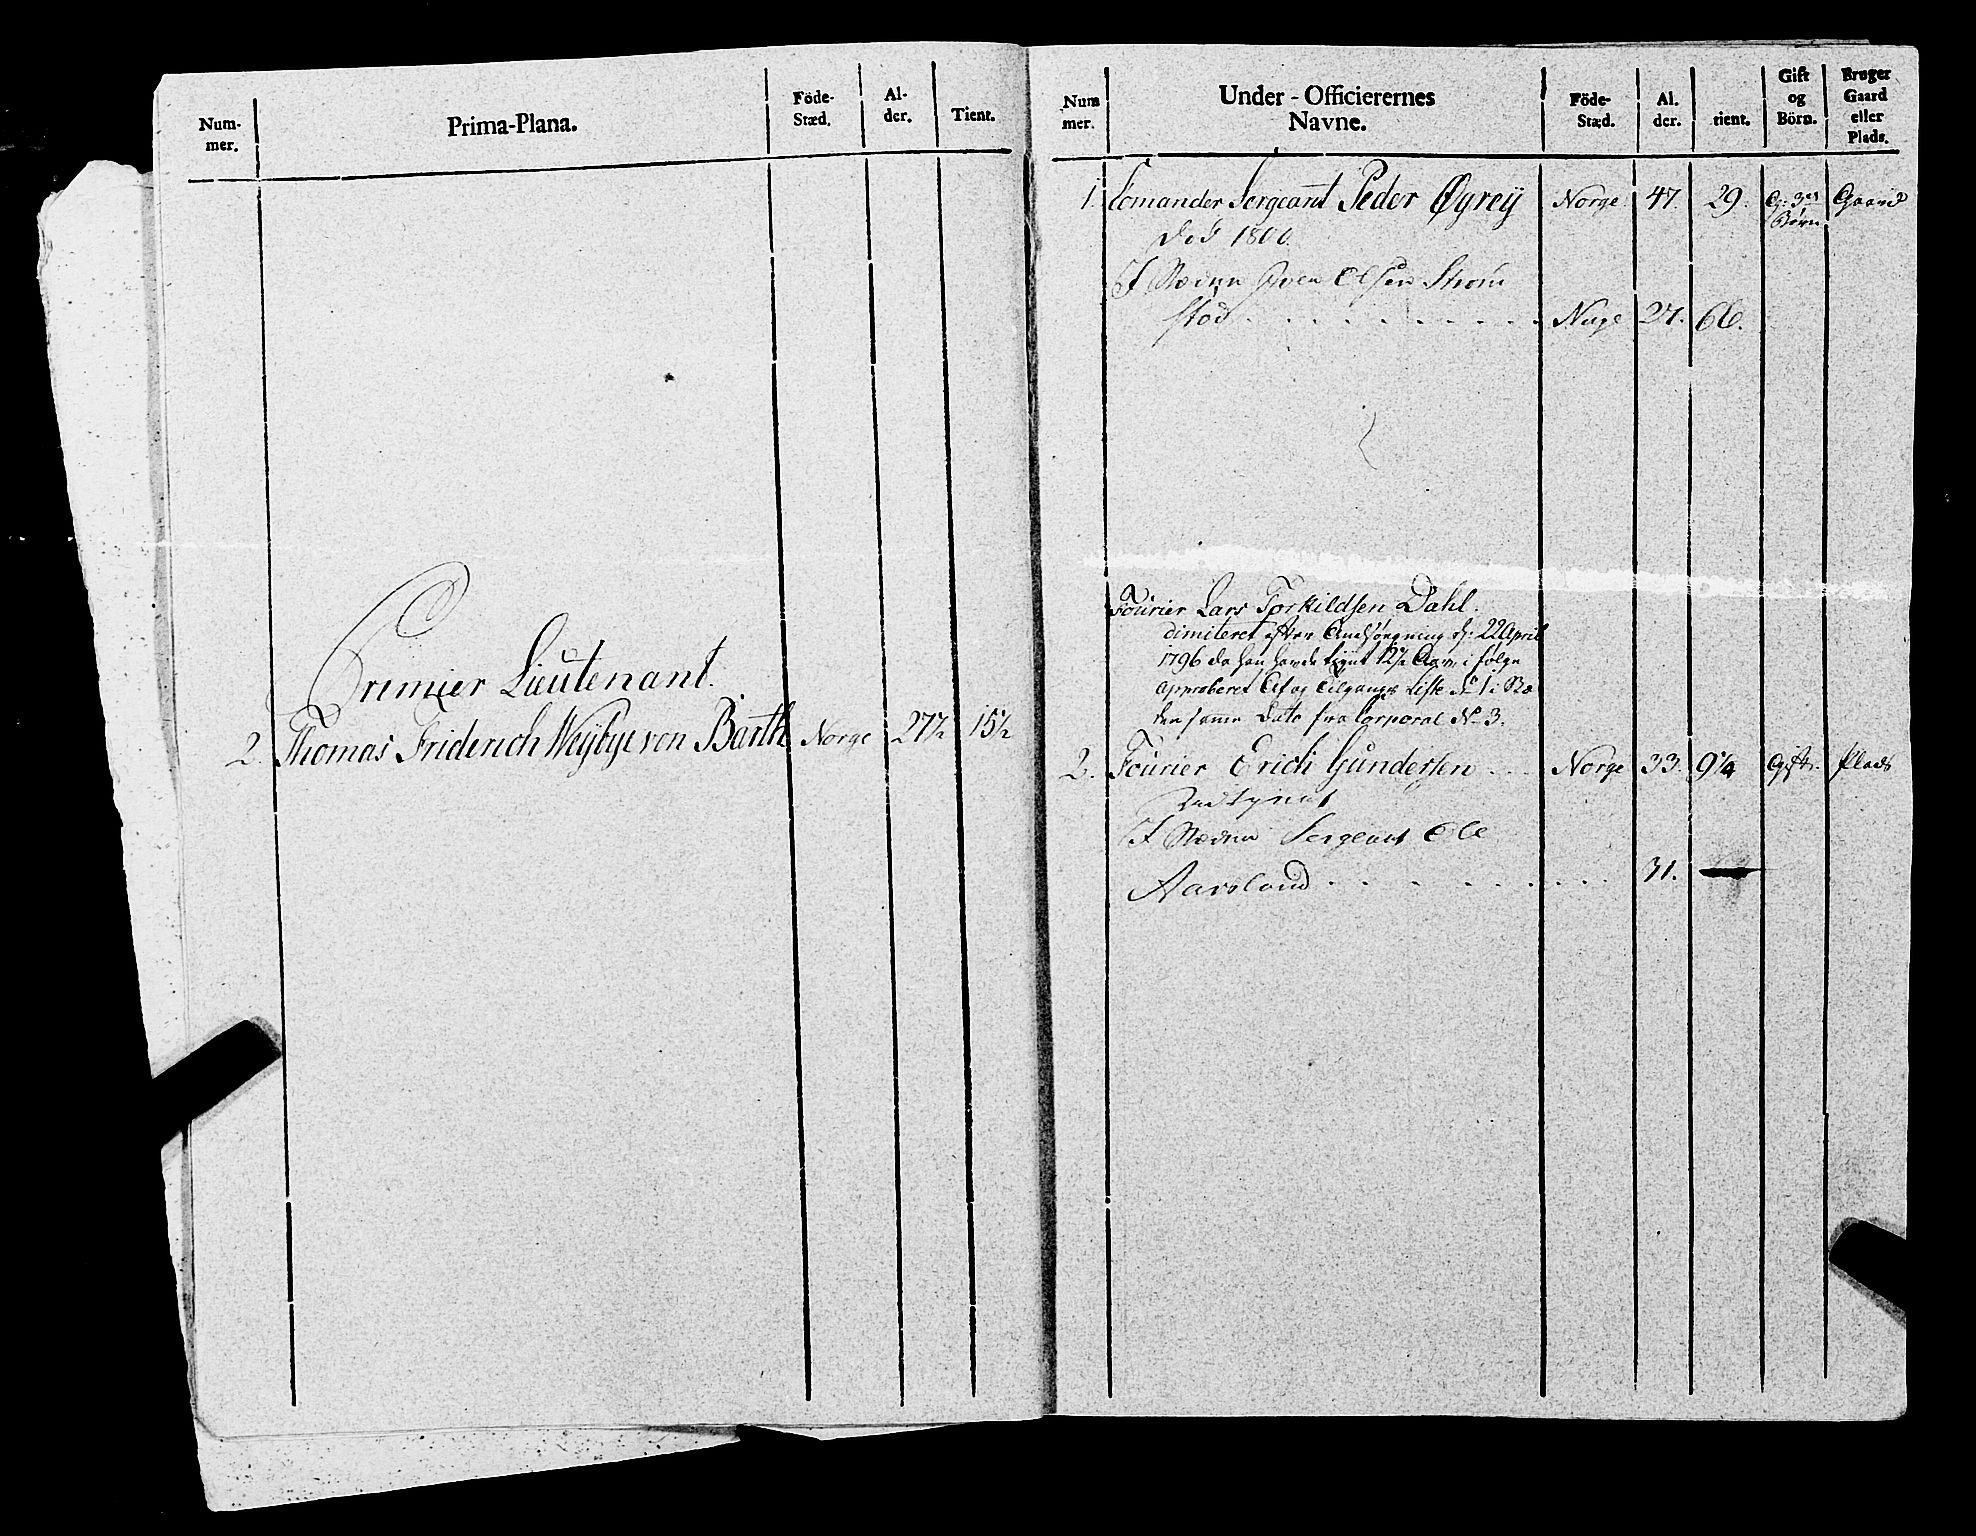 Num-
mer.
Prima-Plana.
Föde-
Stæd.
Al-
der.
Tient.
Premier Lieutenant.
2. Thomas Friderich Weybye von Barth Norge 27½ 15½
Num
mer.
Under-Officierernes
Navne.
Föde-
Stæd.
Al.
der.
tient.
Gift
og
Börn.
Bruger
Gaard
eller
Plads.
1. Comander Sergeant Peder Øyreÿ Norge 47. 29. G: 3 Børn Gaard
død 1800.
I Stæden Olsen Strøm
stad Norge 27.
Fourier Lars Torkildsen Dahl.
dimiteret efter Ansøgning d: 22 April
1796 da han havde tient 12½ Aar, i følge
approberet Af og Tilgangs Liste No 1 i
den samme Dato fra Corporal No 3.
2. Fourier Erich Gundersen Norge 33. 9¼ Gift. Plads
Udtient
I Stæden Sergeant Ole
Aarsland 31.